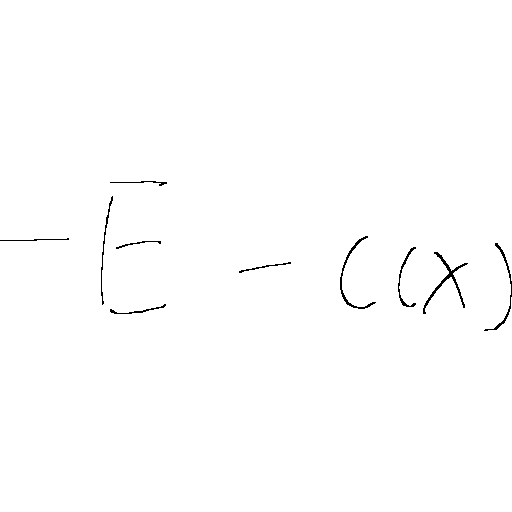 - E - C(x)